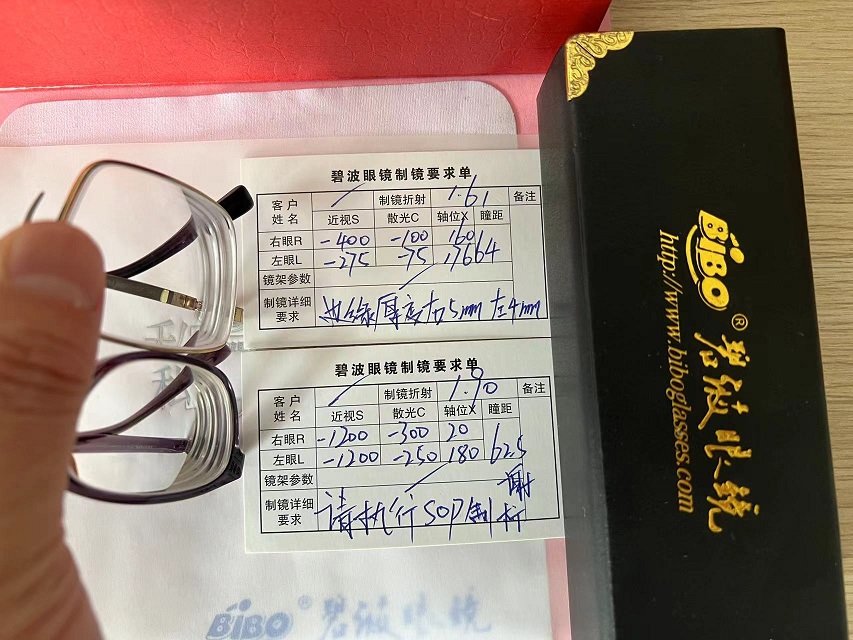 碧波眼镜制镜要求单
客户 制镜折射 1.61 备注
姓名 近视S 散光C 轴位X 瞳距
右眼R -400 -100 160
左眼L -275 -75 176 64
镜架参数
制镜详细要求 边缘厚度右5mm 左4mm
碧波眼镜制镜要求单
客户 制镜折射 1.90 备注
姓名 近视S 散光C 轴位X 瞳距
右眼R -1200 -300 20
左眼L -1200 -250 180 62.5
镜架参数
制镜详细要求 请执行SOP制 谢
BiBO® 碧波眼镜
http://www.biboglasses.com
BiBO® 碧波眼镜